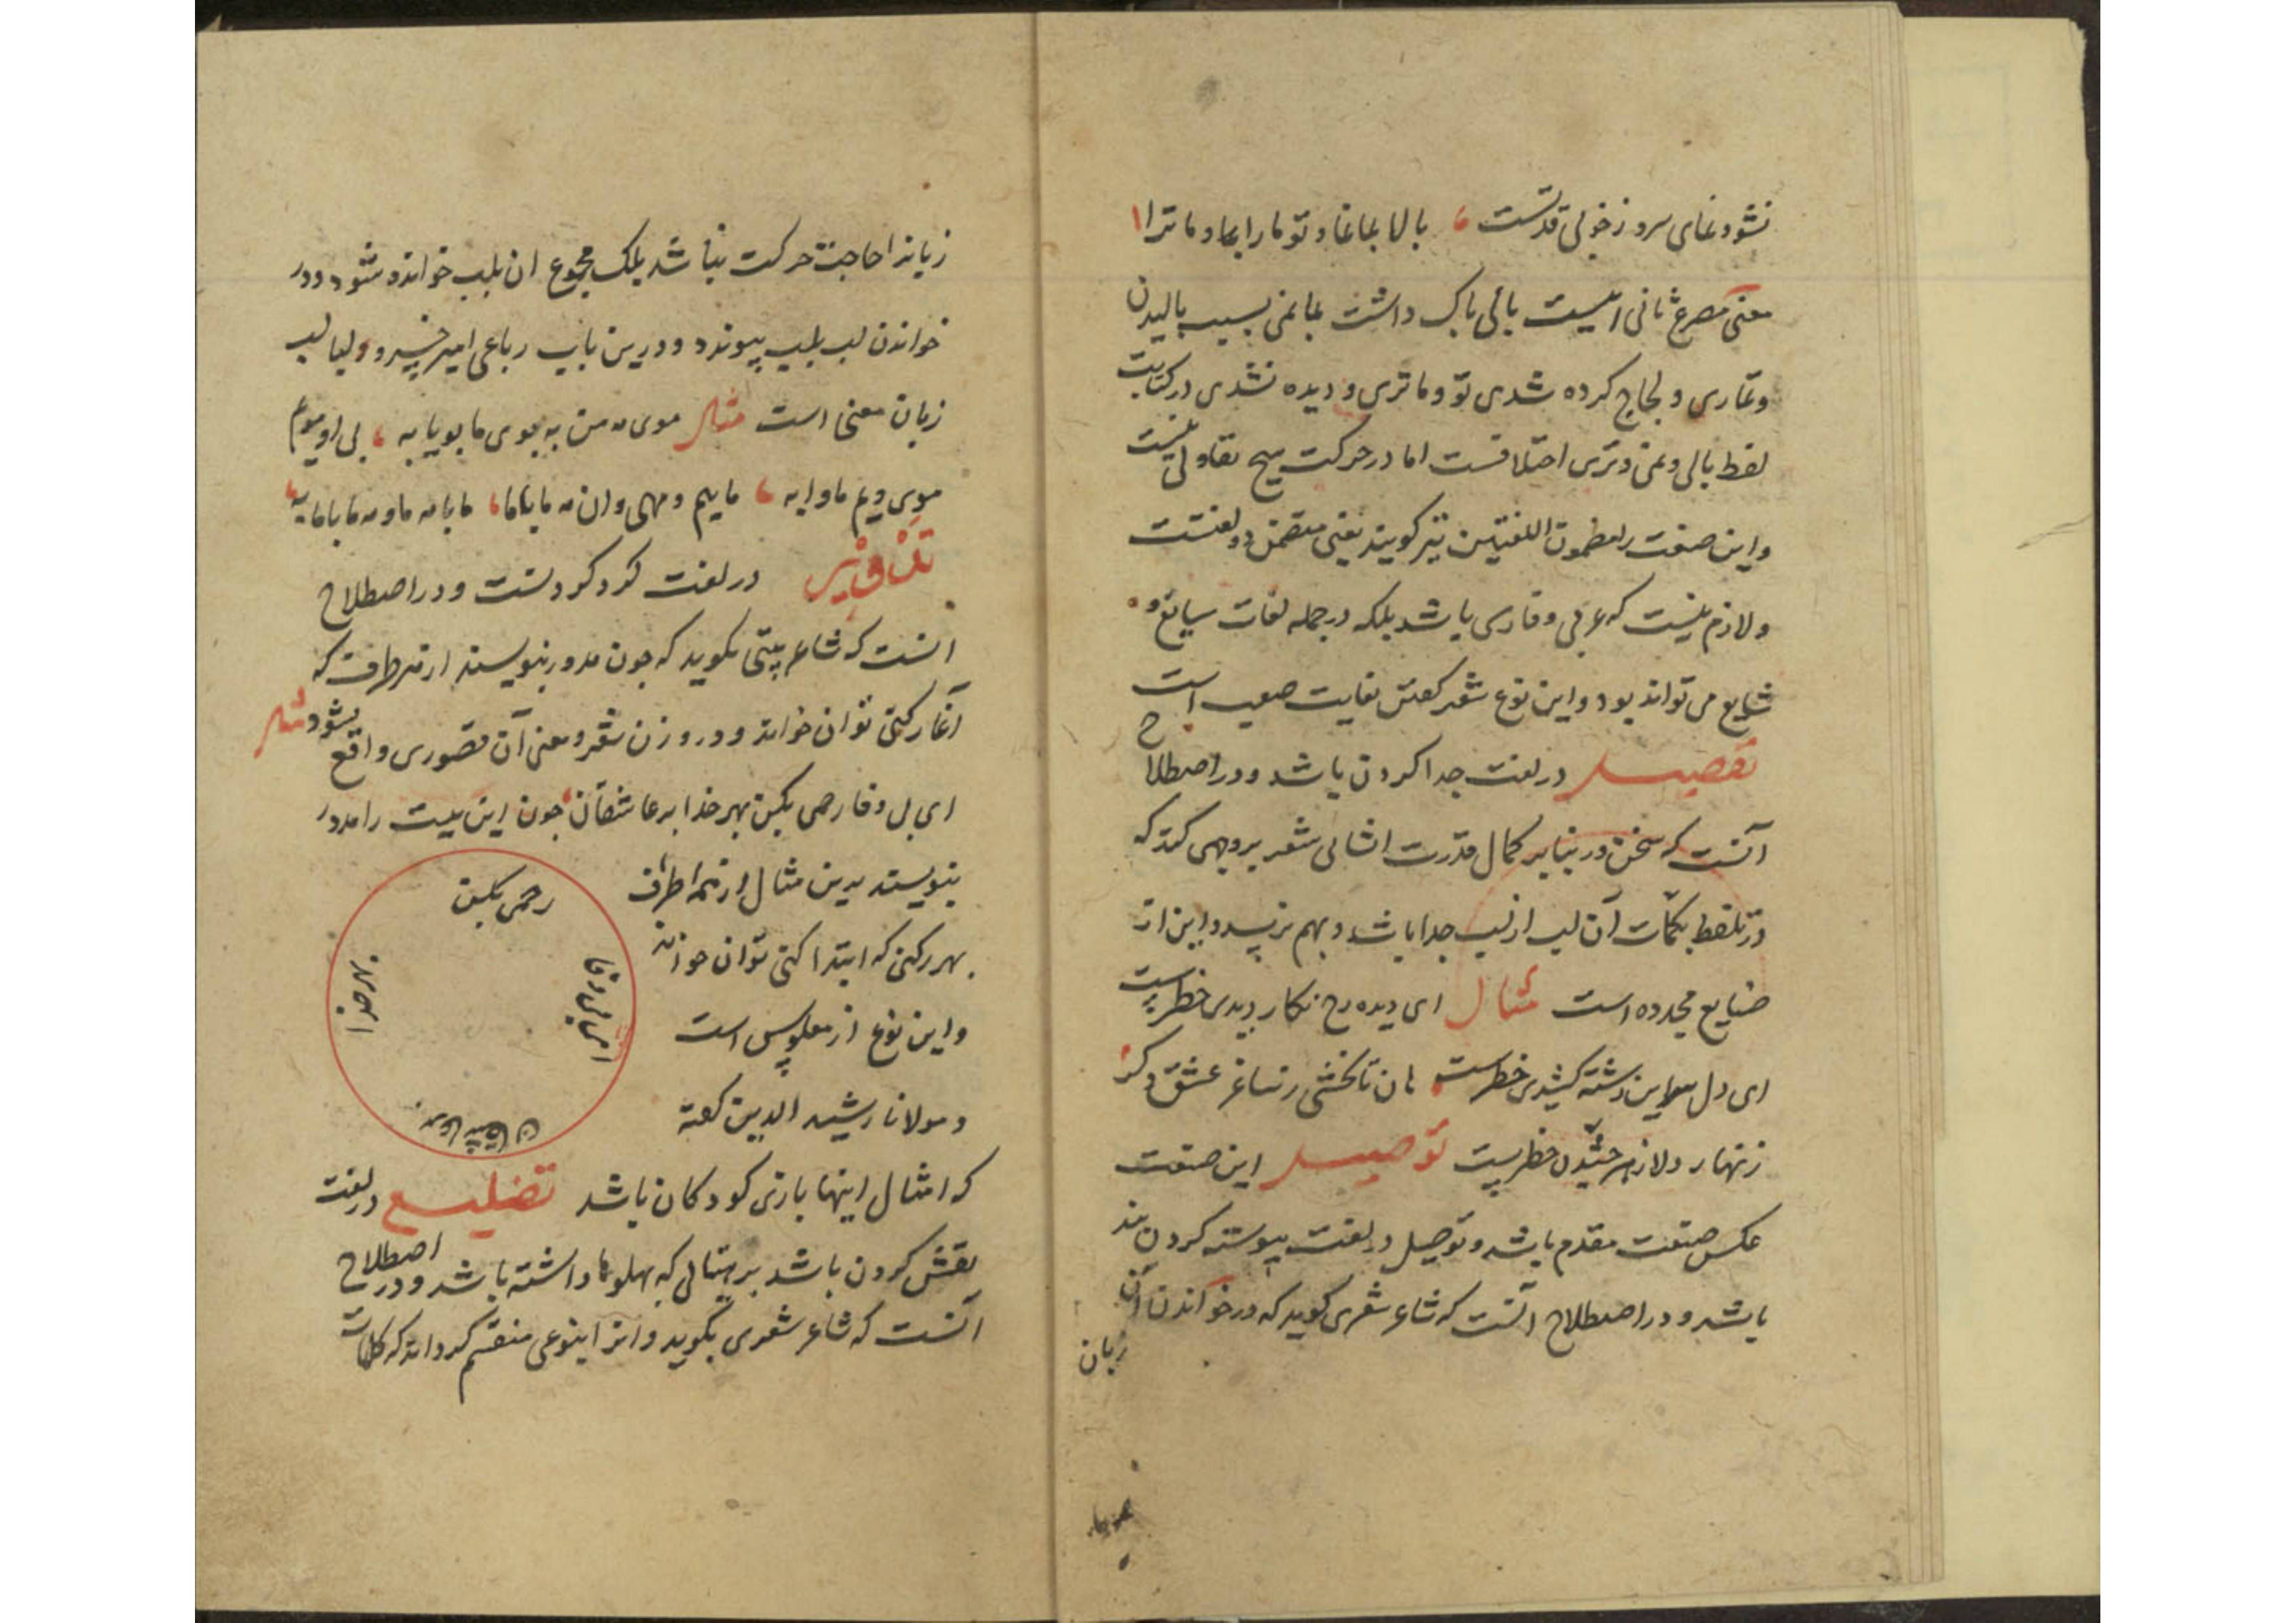 نشود نمای سرو ز خوبی قدتست ، بالا بما نما و تو ما را بما و ما ترا
معنی مصرع ثانی اینست بالی باک داشت بما نمی بسبب بالیدن
و تماری و لجاج کرده شدی تو و ما تری و دیده نشدی در کتابت
لفظ بالی و نمی و تری اختلافست اما در حرکت هیچ تفاوتی نیست
و این صنعت را مضمون اللغتین نیز گویند یعنی متضمن دو لغتست
و لازم نیست که عربی و فارسی باشد بلکه در جمله لغات سایغ و
شایع می تواند بود و این نوع شعر گفتن بغایت صعب است
تفصیل در لغت جدا کردن باشد و در اصطلاح
آنست که سخن ور بنا بر کمال قدرت انشای شعر بر وجهی کند که
در تلفظ بکلمات آن لب از لب جدا باشد و بهم نرسد و این از
صنایع مجدده است مثال ای دیده رخ نگار دیدی خطرست
ای دل سر این رشته کشیدی خطرست هان تا نخشی ز ساغر عشق دگر
زنهار دلا زهر چشیدن خطرست توصیل این صنعت
عکس صنعت مقدم باشد و توصیل در لغت پیوسته کردن بند
باشد و در اصطلاح آنست که شاعر شعری گوید که در خواندن آن
زبان
زبانرا حاجت حرکت نباشد بلک مجموع ان بلب خوانده شود و در
خواندن لب بلب پیوندد و درین باب رباعی امیر خسرو و لبالب
زبان معنی است مثال موی مه من به بوی ما بویا به ، بی او مویم
موی ویم ماوا به ، ماییم و مهی وان مه ما با ما ، ما با مه ما و مه ما با ما به
تدویر در لغت گرد گردنست و در اصطلاح
انست که شاعر بیتی بگوید که چون مدور بنویسند از هر طرف که
آغاز کنی توان خواند و در وزن شعر و معنی آن قصوری واقع نشود مثال
ای بی وفا رحمی بکن بهر خدا بر عاشقان چون این بیت را مدور
بنویسند بدین مثال از همه اطراف
بهر رکنی که ابتدا کنی توان خواند
و این نوع از معکوس است
و مولانا رشید الدین گفته
رحمی بکن
بهر خدا
ای بی وفا
بر عاشقان
که امثال اینها بازی کودکان باشد تضلیع در لغت
نقش کردن باشد بر مثالی که پهلوها داشته باشد و در اصطلاح
آنست که شاعر شعری بگوید و انرا بنوعی منقسم گرداند که کلمات